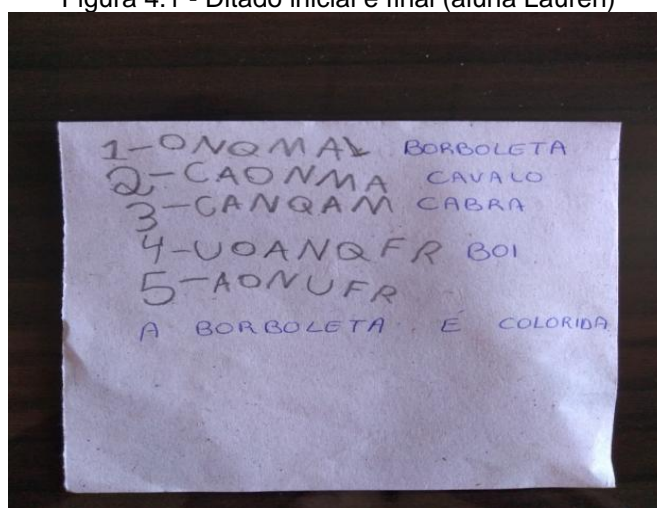 Figura 4.1 - Ditado inicial e final (aluna Lauren)
1-ONQMAL BORBOLETA
2-CAONMA CAVALO
3-CANQAM CABRA
4-UOANQFR BOI
5-AONUFR
A BORBOLETA E COLORIDA